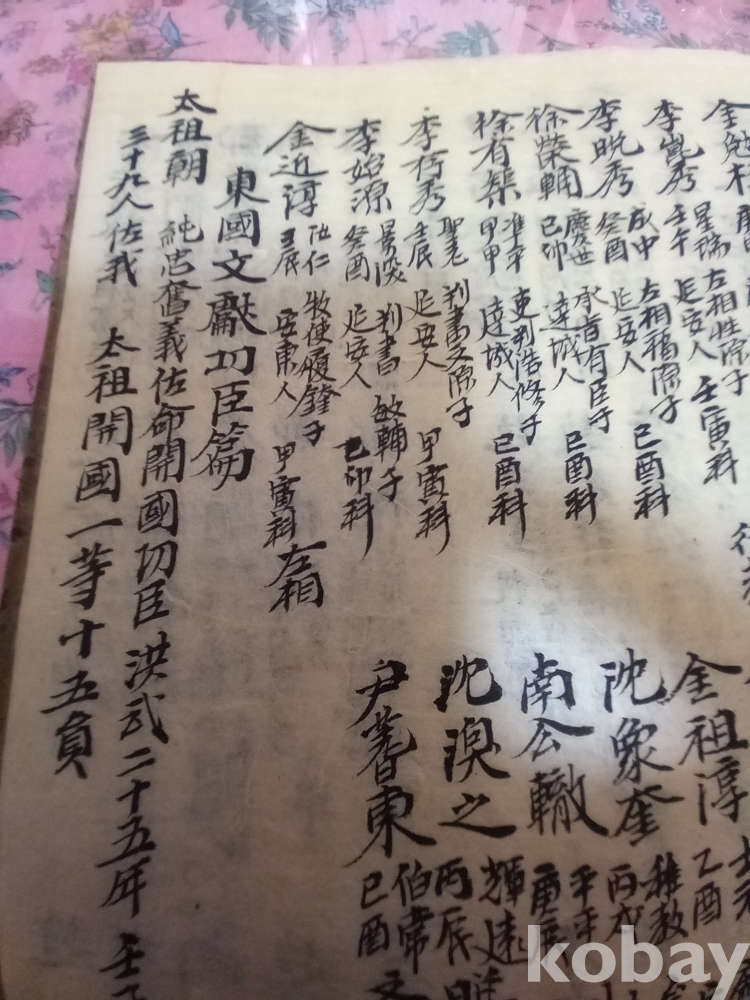 金勉
李崑秀 星瑞 左相性源子
壬午 延安人 壬寅科
李晚秀 成中 左相福源子
癸酉 延安人 己酉科
徐榮輔 慶世 承旨有臣子
己卯 達城人 己酉科
徐有榘 準平 吏判浩修子
甲申 達城人 己酉科
李存秀 聖老 判書文源子
壬辰 延安人 甲寅科
李始源 景深 判書敏輔子
癸酉 延安人 乙卯科
金近淳 汝仁 牧使履鐸子
壬辰 安東人 甲寅科 左相
金祖淳
乙酉
沈象奎 穉教
丙戌
南公轍 元平
庚辰
沈渙之 輝遠
丙辰
尹蓍東 伯常
己酉
東國文獻功臣篇
太祖朝 純忠奮義佐命開國功臣 洪武二十五年 壬
三十九人佐我 太祖開國 一等十五負
kobay